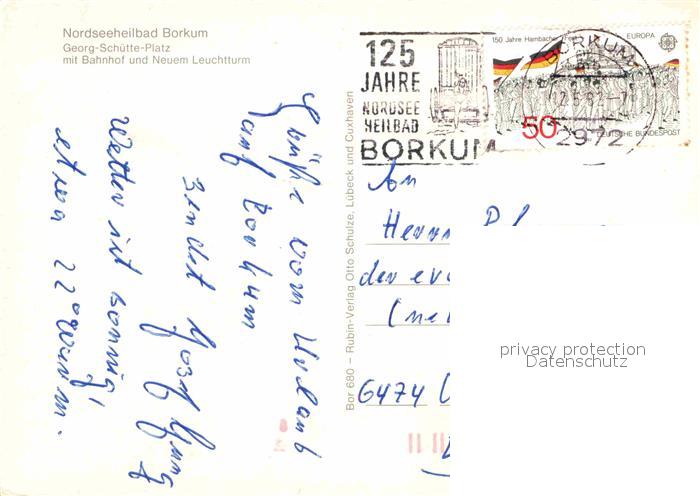 Nordseeheilbad Borkum
Georg-Schütte-Platz
mit Bahnhof und Neuem Leuchtturm
125
JAHRE
NORDSEE
HEILBAD
BORKUM
150 Jahre Hambacher
EUROPA
BORKUM
50
DEUTSCHE BUNDESPOST
2972
Grüße vom Urlaub
auf Borkum
sendet Josef
Wetter ist sonnig,
etwa 22° warm.
Bor 680 – Rubin-Verlag Otto Schulze, Lübeck und Cuxhaven
An
Herrn
der ev
6474
privacy protection
Datenschutz